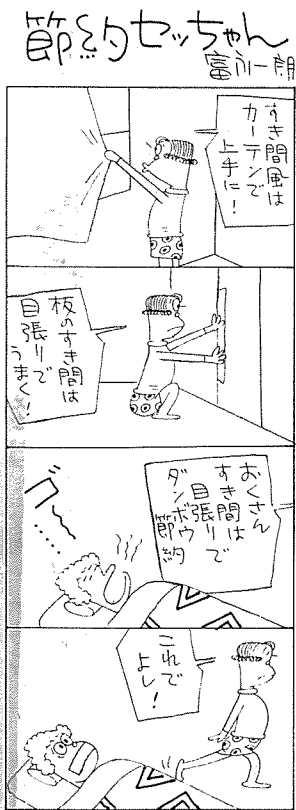 節約セッちゃん
富永一朗
すき間風は
カーテンで
上手に！
板のすき間は
目張りで
うまく！
おくさん
すき間は
目張りで
ダンボウ
節約
グ〜……
これで
よし！